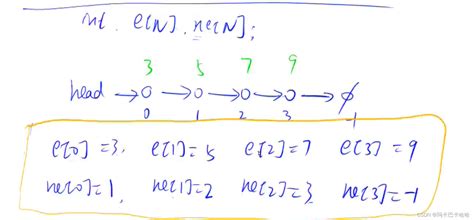 int e[N], ne[N];
3 5 7 9
head → o → o → o → o → ∅
0 1 2 3 -1
e[0]=3, e[1]=5 e[2]=7 e[3]=9
ne[0]=1, ne[1]=2 ne[2]=3 ne[3]=-1